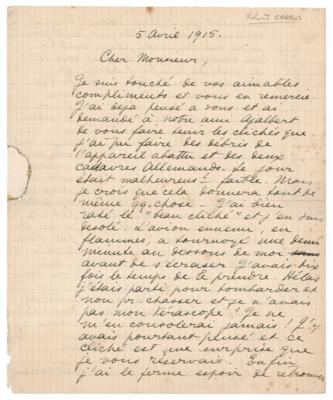 5 Avril 1915.
Cher Monsieur,
Je suis touché de vos aimables
compliments et vous en remercie.
J'ai deja pensé a vous et ai
demandé a notre ami Ajalbert
de vous faire tenir les clichés que
j'ai pu faire des debris de
l'appareil abattu et des deux
cadavres Allemands. Le jour
etait malheureus- faible. Mais
je crois que cela donnera tout de
même qq chose. J'ai bien
raté le "beau cliché" et j'en suis
désolé. L'avion ennemi, en
flammes, a tournoyé une demi
minute au dessous de moi
avant de s'ecraser. J'avais dix
fois le temps de le prendre. Hélas
j'étais parti pour bombarder et
non pr. chasser et je n'avais
pas mon verascope! Je ne
m'en consolerai jamais! J'y
avais pourtant pensé et ce
cliché est une surprise que
je vous reservais. Enfin
j'ai le ferme espoir de retrouver